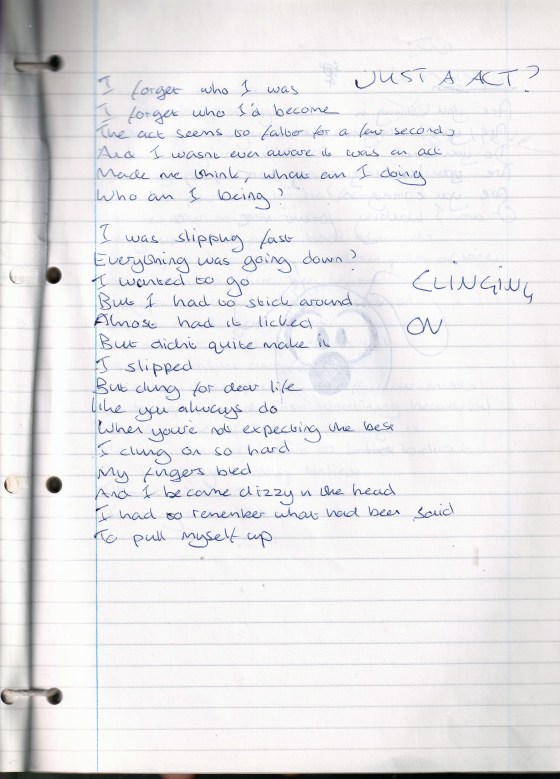 JUST A ACT?
I forget who I was
I forget who I'd become
The act seems to falter for a few seconds,
And I wasnt even aware it was an act
Made me think, what am I doing
Who am I being?
I was slipping fast
Everything was going down?
I wanted to go
But I had to stick around
Almost had it licked
But didn't quite make it
I slipped
But clung for dear life
like you always do
When you're not expecting the best
I clung on so hard
My fingers bled
And I become dizzy n the head
I had to remember what had been said
To pull myself up
CLINGING
ON